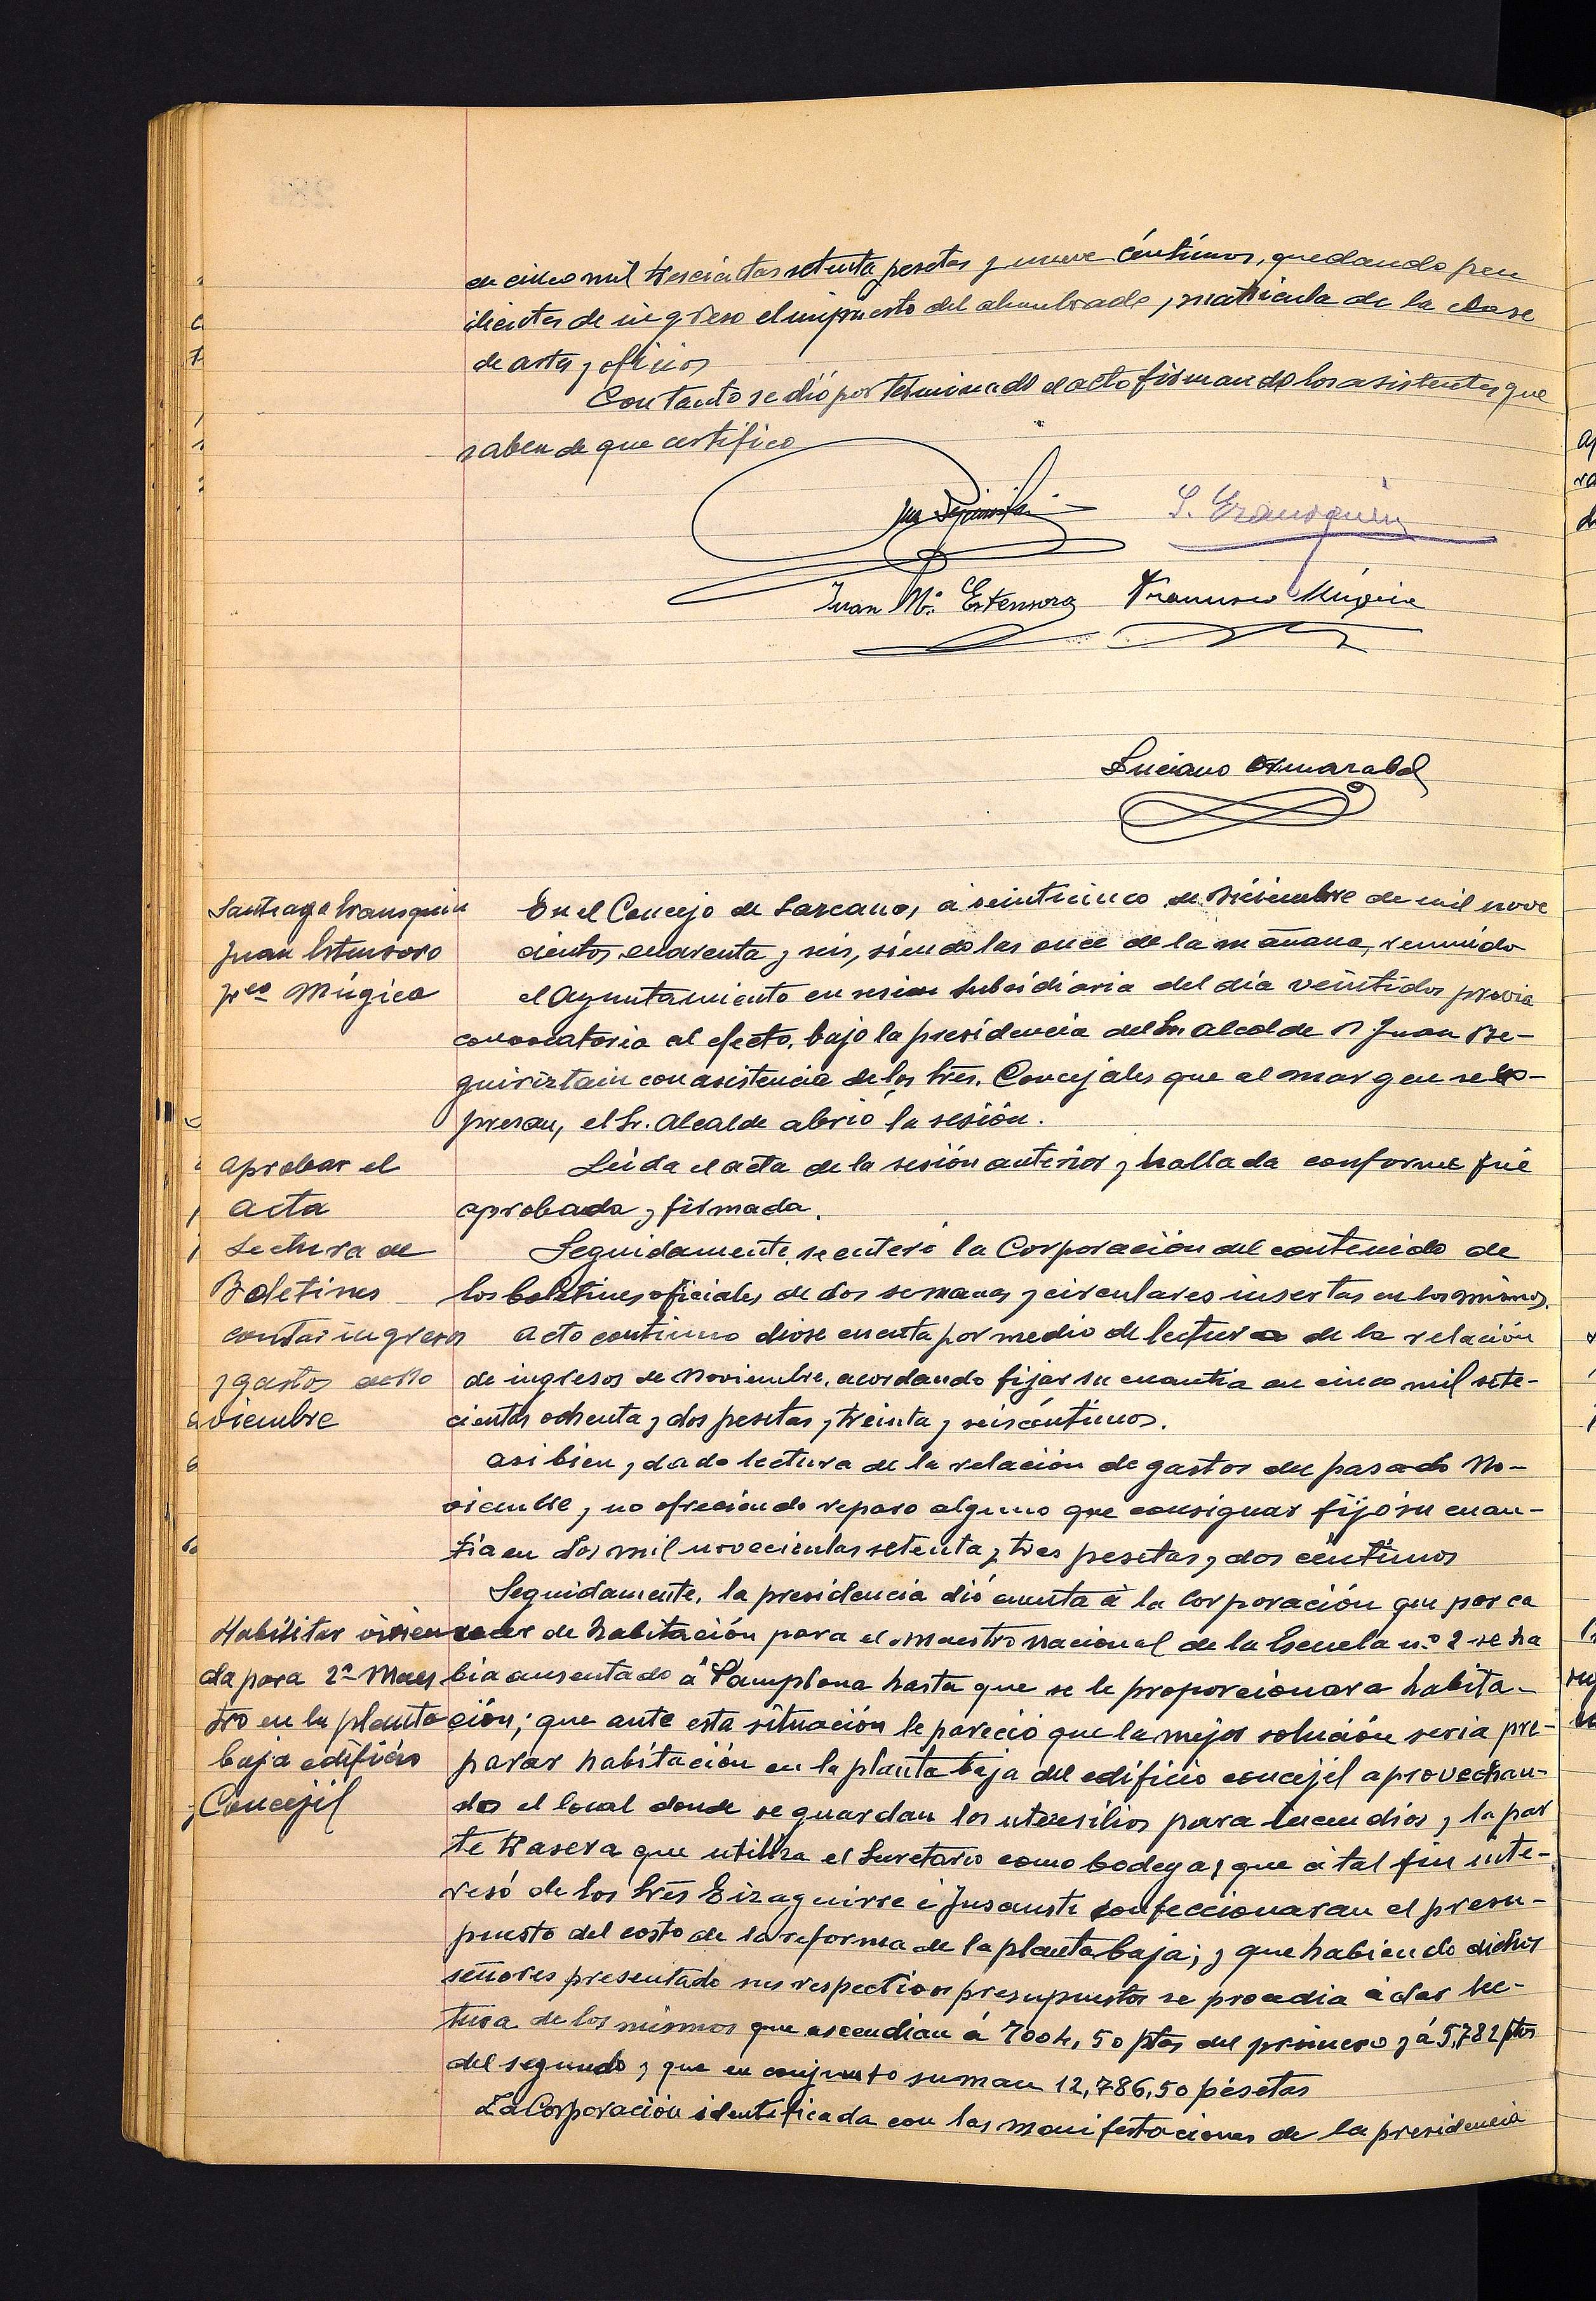 en cinco mil trescientas setenta pesetas y nueve céntimos, quedando pen
dientes de ingreso el impuesto del alumbrado, matricula de la clase
de artes y oficios
Con tanto se dió por terminado el acto firmando los asistentes que
saben de que certifico
S. Eransquin
Juan Mª. Estensoro Francisco Múgica
Luciano Asmarabal
Santiago Eransquin
Juan Estensoro
Fco Múgica
En el Concejo de Lazcano, á veinticinco de Diciembre de mil nove
cientos cuarenta y seis, siendo las once de la mañana, reunido
el Ayuntamiento en sesion subsidiaria del día veintidos previa
convocatoria al efecto, bajo la presidencia del Sr. alcalde D Juan Be-
guiriztain con asistencia de los Sres. Concejales que al margen se ex-
presan, el Sr. Alcalde abrió la sesión.
Aprobar el
acta
Leida el acta de la sesión anterior y hallada conforme fué
aprobada y firmada.
Lectura de
Boletines
Seguidamente, se enteró la Corporación del contenido de
los boletines oficiales de dos semanas y circulares insertas en los mismos.
contar ingresos
y gastos de No
viembre
Acto continuo diose cuenta por medio de lectura de la relación
de ingresos de Noviembre, acordando fijar su cuantia en cinco mil sete-
cientas ochenta y dos pesetas y treinta y seis céntimos.
Asi bien, dado lectura de la relación de gastos del pasado No-
viembre, y no ofreciendo reparo alguno que consignar fijó su cuan-
tía en dos mil novecientas setenta y tres pesetas y dos céntimos
Seguidamente, la presidencia dió cuenta á la Corporación que por ca
Habilitar vivien
da para 2º Maes
tro en la planta
baja edificio
Concejil
recer de habitación para el maestro nacional de la Escuela n.º 2 se ha
bia ausentado á Pamplona hasta que se le proporcionara habita-
ción; que ante esta situación le pareció que la mejor solución seria pre-
parar habitación en la planta baja del edificio concejil aprovechan-
do el local donde se guardan los utensilios para incendios y la par
te trasera que utiliza el Secretario como bodega, que á tal fin inte-
resó de los Sres Eizaguirre é Jusausti confeccionaran el presu-
puesto del costo de la reforma de la planta baja; y que habiendo dichos
señores presentado sus respectivos presupuestos se procedia á dar lec-
tura de los mismos que ascendian á 7004,50 ptas del primero y á 5,782 ptas
del segundo y que en conjunto suman 12,786,50 pésetas
La Corporación identificada con las manifestaciones de la presidencia